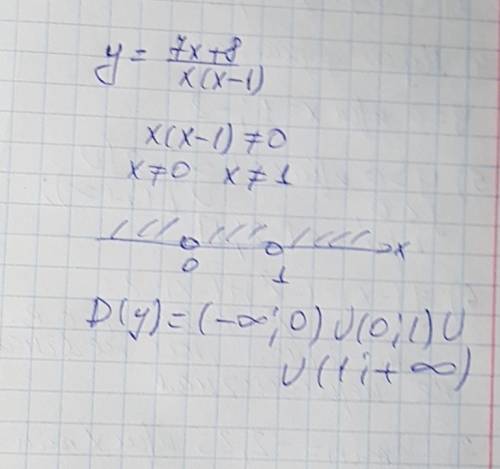 y = 7x+8 / x(x-1)
x(x-1) ≠ 0
x ≠ 0 x ≠ 1
0 1 x
D(y) = (-∞; 0) U (0; 1) U
U (1; + ∞)